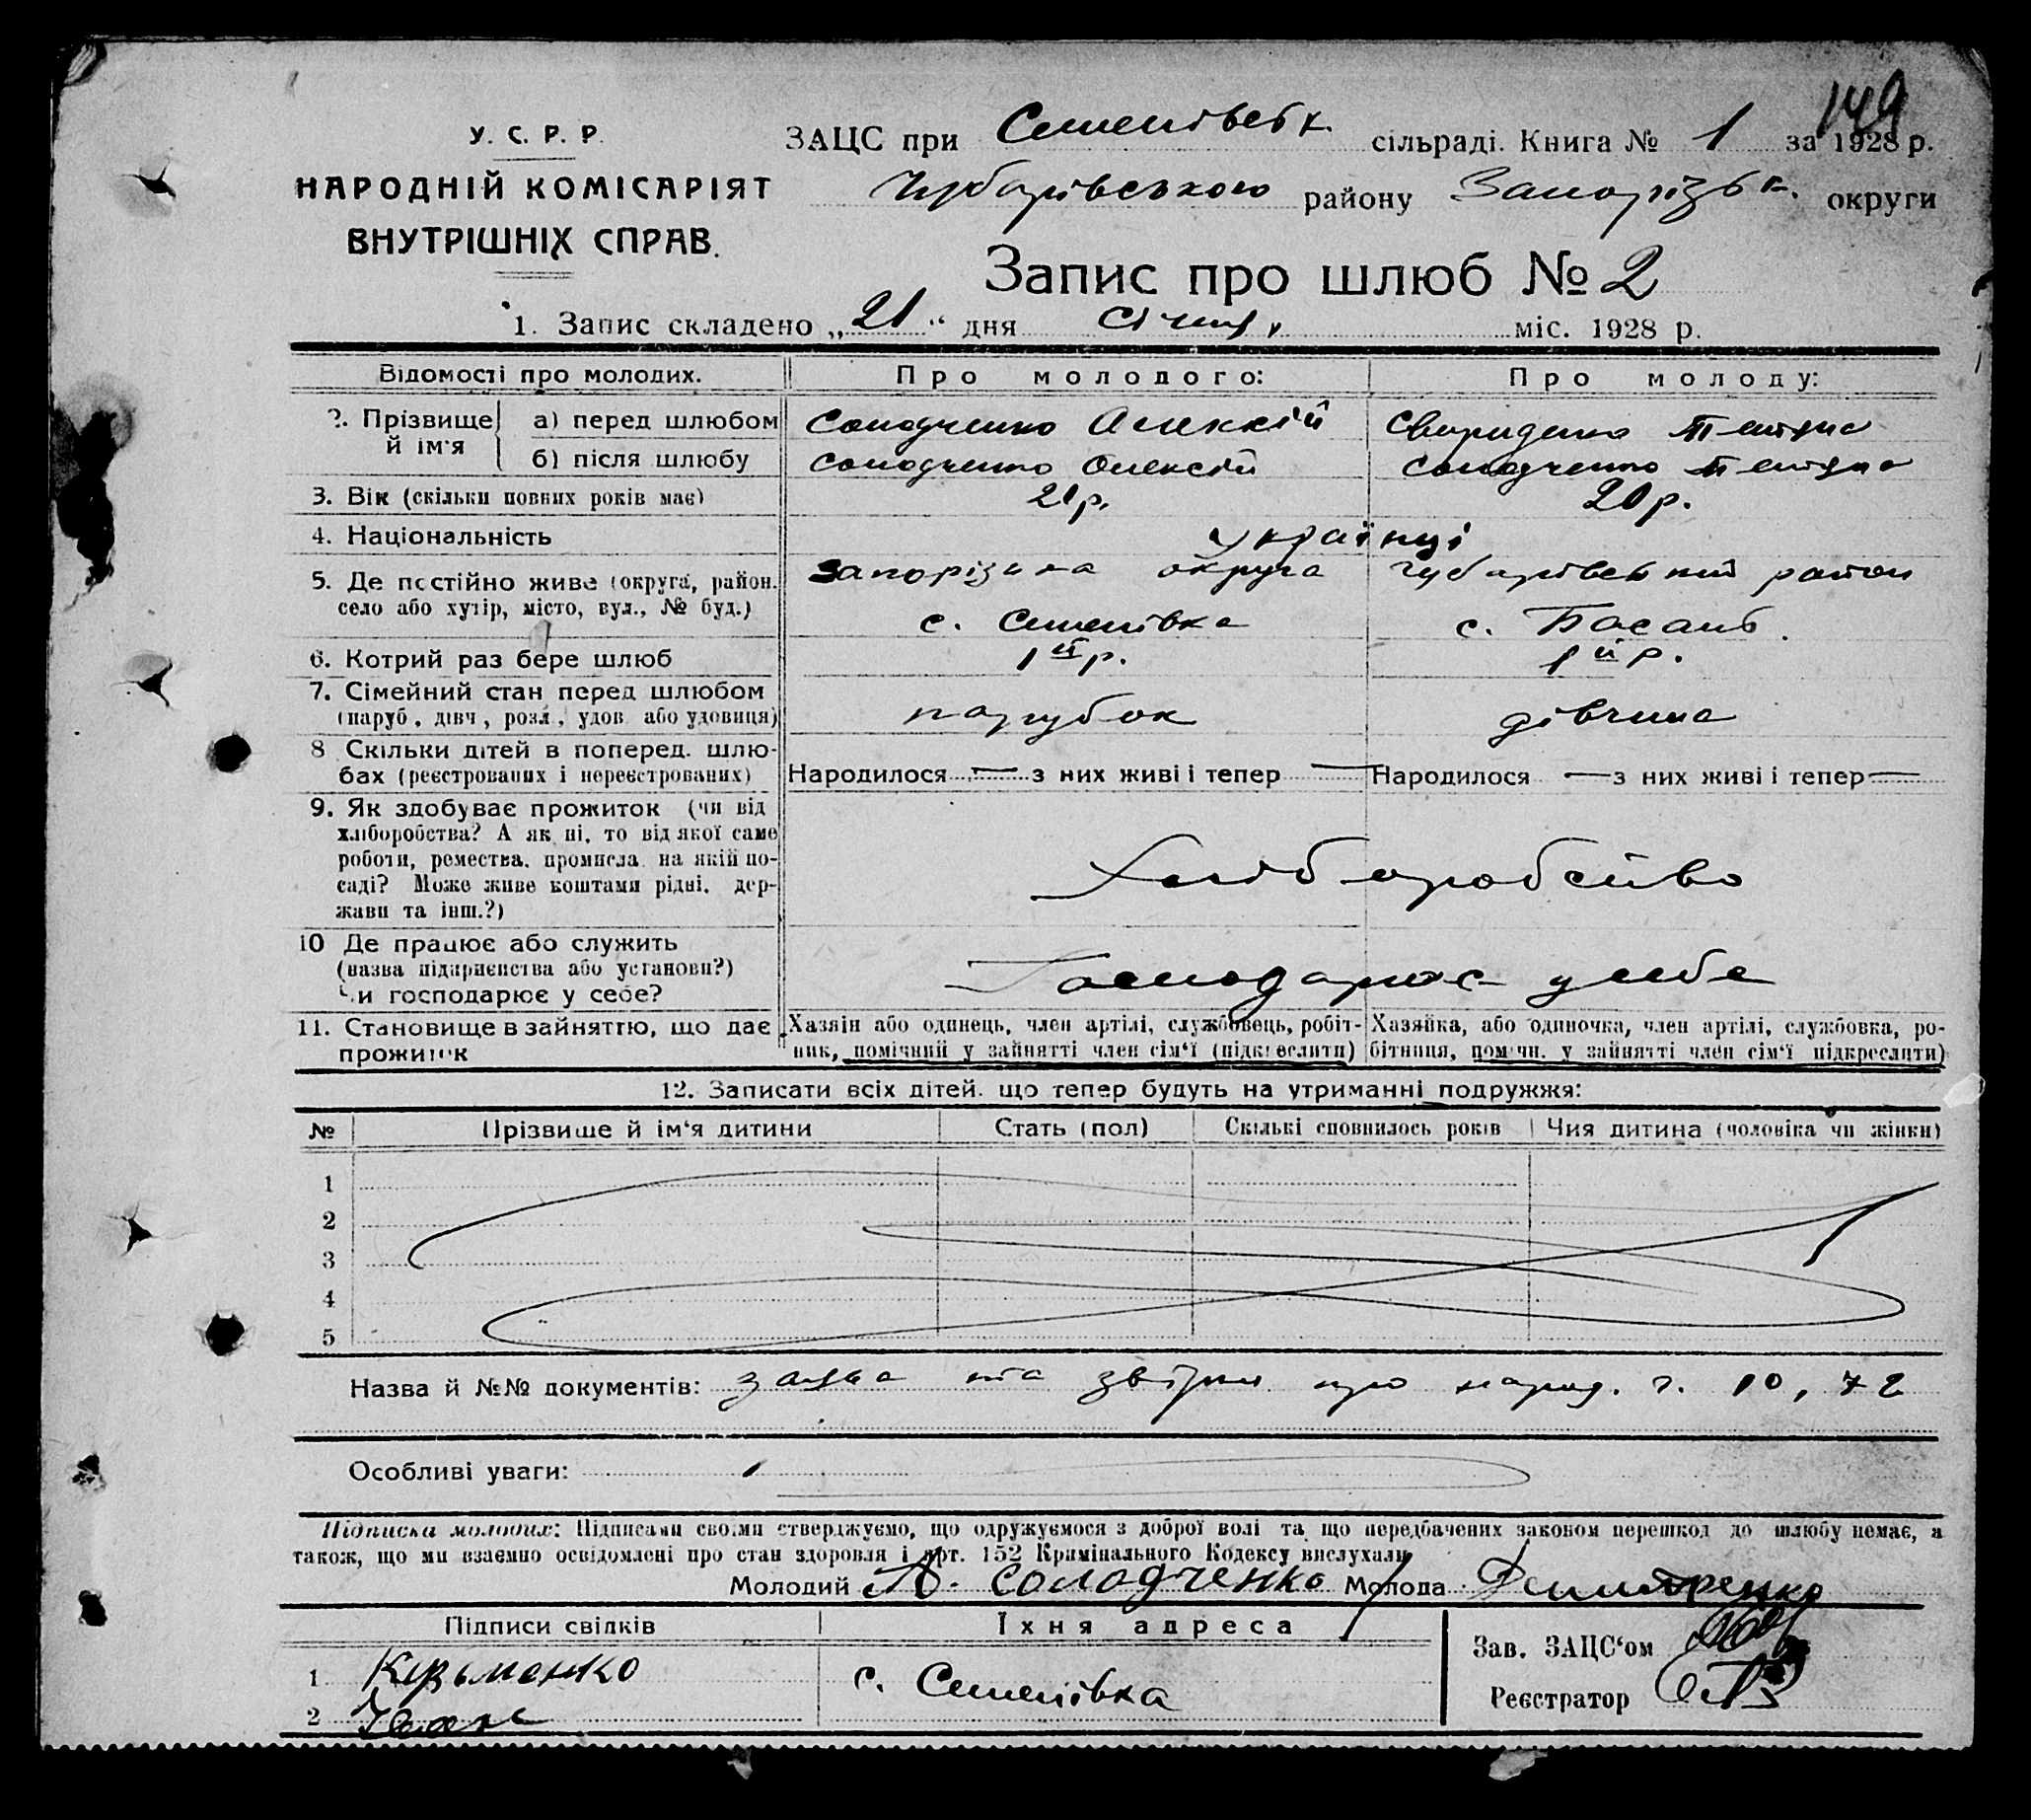 149
У. С. Р. Р.
НАРОДНІЙ КОМІСАРІЯТ
ВНУТРІШНІХ СПРАВ.
ЗАЦС при Семенівськ. сільраді. Книга № 1 за 1928 р.
Чубарівського району Запорізьк. округи
Запис про шлюб № 2
1. Запис складено „21“ дня січня міс. 1928 р.
Відомості про молодих. Про молодого: Про молоду:
2. Прізвище й ім'я
а) перед шлюбом Солодченко Алексій Свириденко
б) після шлюбу Солодченко Олексій Солодченко
3. Вік (скільки повних років має) 21р. 20р.
4. Національність українці
5. Де постійно живе (округа, район, Запорізька округа Чубарівський район
село або хутір, місто, вул., № буд.) с. Семенівка с. Басань
6. Котрий раз бере шлюб 1й р. 1й р.
7. Сімейний стан перед шлюбом
(паруб., дівч., розл., удов. або удовиця) парубок дівчина
8 Скільки дітей в поперед. шлю-
бах (реєстрованих і нереєстрованих) Народилося — з них живі і тепер — Народилося — з них живі і тепер —
9. Як здобуває прожиток (чи від
хліборобства? А як ні, то від якої саме
роботи, ремества, промисла на якій по-
саді? Може живе коштами рідні, дер-
жави та інш.?)
Хліборобство
10 Де працює або служить
(назва підприємства або установи?)
Чи господарює у себе?
Господарює у себе
11. Становище в зайняттю, що дає прожиток
Хазяїн або одинець, член артілі, службовець, робіт-
ник, помічний у зайнятті член сім'ї (підкреслити)
Хазяйка, або одиночка, член артілі, службовка, ро-
бітниця, помічн. у зайнятті член сім'ї підкреслити)
12. Записати всіх дітей, що тепер будуть на утриманні подружжя:
№ Прізвище й ім'я дитини Стать (пол) Скількі сповнилось років Чия дитина (чоловіка чи жінки)
1
2
3
4
5
Назва й №№ документів: заява та звірки про народ. ч. 10, 72
Особливі уваги:
Підписка молодих: Підписами своїми стверджуємо, що одружуємося з доброї волі та що передбачених законом перешкод до шлюбу немає, а
також, що ми взаємно освідомлені про стан здоровля і арт. 152 Кримінального Кодексу вислухали
Молодий А. Солодченко Молода
Підписи свідків Їхня адреса
1 Кузьменко с. Семенівка
2 Іван
Зав. ЗАЦС'ом
Реєстратор